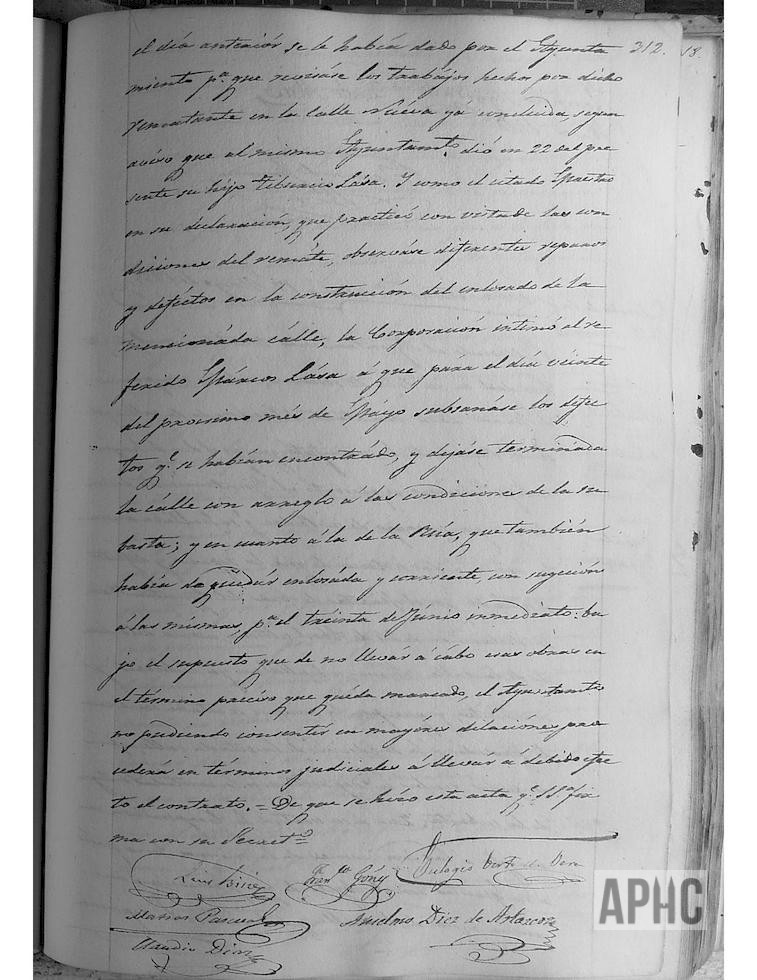 312. 18.
el día anteriór se le habia dado por el Ayunta
miento pª que revisáse los trabájos hechos por dicho
rematante en la Calle Nuéva yá concluida, segun
avíso que al mismo Ayuntamto dió en 22 del pre
sente su hijo Tiburcio Lása. Y como el citado Maestro
en su declaración, que practicó con vista de las con
diciones del remáte, observáse diferentes reparos
y deféctos en la construcción del enlosado de la
mencionáda cálle, la Corporación intimó al re
ferido Márcos Lása á que pára el dia véinte
del procsimo més de Máyo subsanáse los defec
tos q.e se habian encontrádo, y dejáse terminada
la cálle con arreglo á las condiciones de la su
basta; y en cuanto á la de la Rúa, que también
había de quedár enlosáda y corriente, con sugeción
á las mismas, pª el treinta de Júnio inmediáto: ba
jo el supuesto que de no llevár á cábo esas óbras en
el término preciso que quéda marcado, el Ayuntamto
no pudiendo consentír en mayóres dilaciónes, pro
cederá en términos judiciales á llevár á debido efec
to el contráto. = De que se hizo esta acta q.e S.Sª fir
ma con su Secretº
Luis
Franco Goñi
Eulogio
Matias Pascual
Anselmo Diez de Arlazcoz
Claudio
APHC